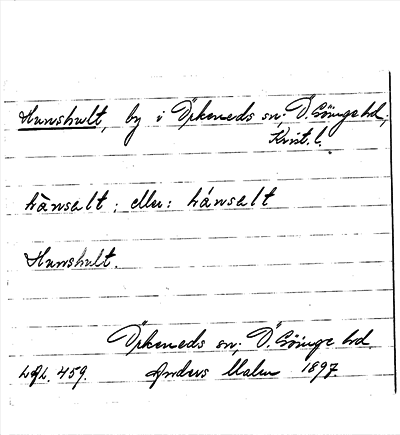 Hunshult, by i Örkeneds sn; Ö. Göinge hd,
Krist. l.
hànsalt; eller: hánsalt
Hunshult.
Örkeneds sn; Ö. Göinge hd.
LGL. 459. Anders Malm 1897